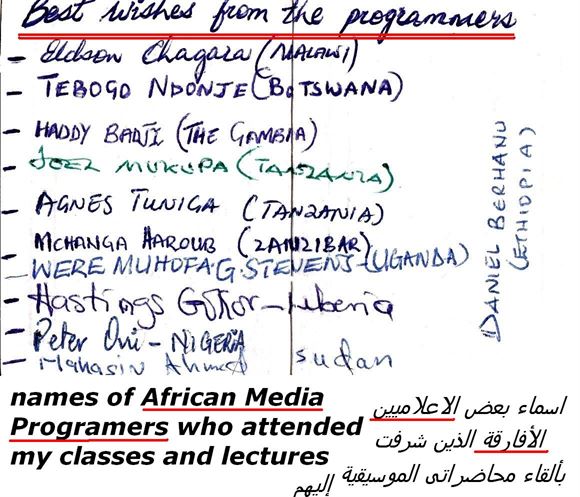 Best wishes from the programmers
- Eldson Chagara (MALAWI)
- TEBOGO NDONJE (BOTSWANA)
- HADDY BADJI (THE GAMBIA)
- JOEL MUKUPA (TANZANIA)
- AGNES TUNIGA (TANZANIA)
- MCHANGA HAROUB (ZANZIBAR)
- WERE MUHOFA.G. STEVENS - (UGANDA)
- Hastings - Liberia
- Peter - NIGERIA
- Mahasin Ahmed Sudan
DANIEL BERHANU
(ETHIOPIA)
names of African Media
Programers who attended
my classes and lectures
اسماء بعض الاعلاميين
الأفارقة الذين شرفت
بألقاء محاضراتى الموسيقية
إليهم